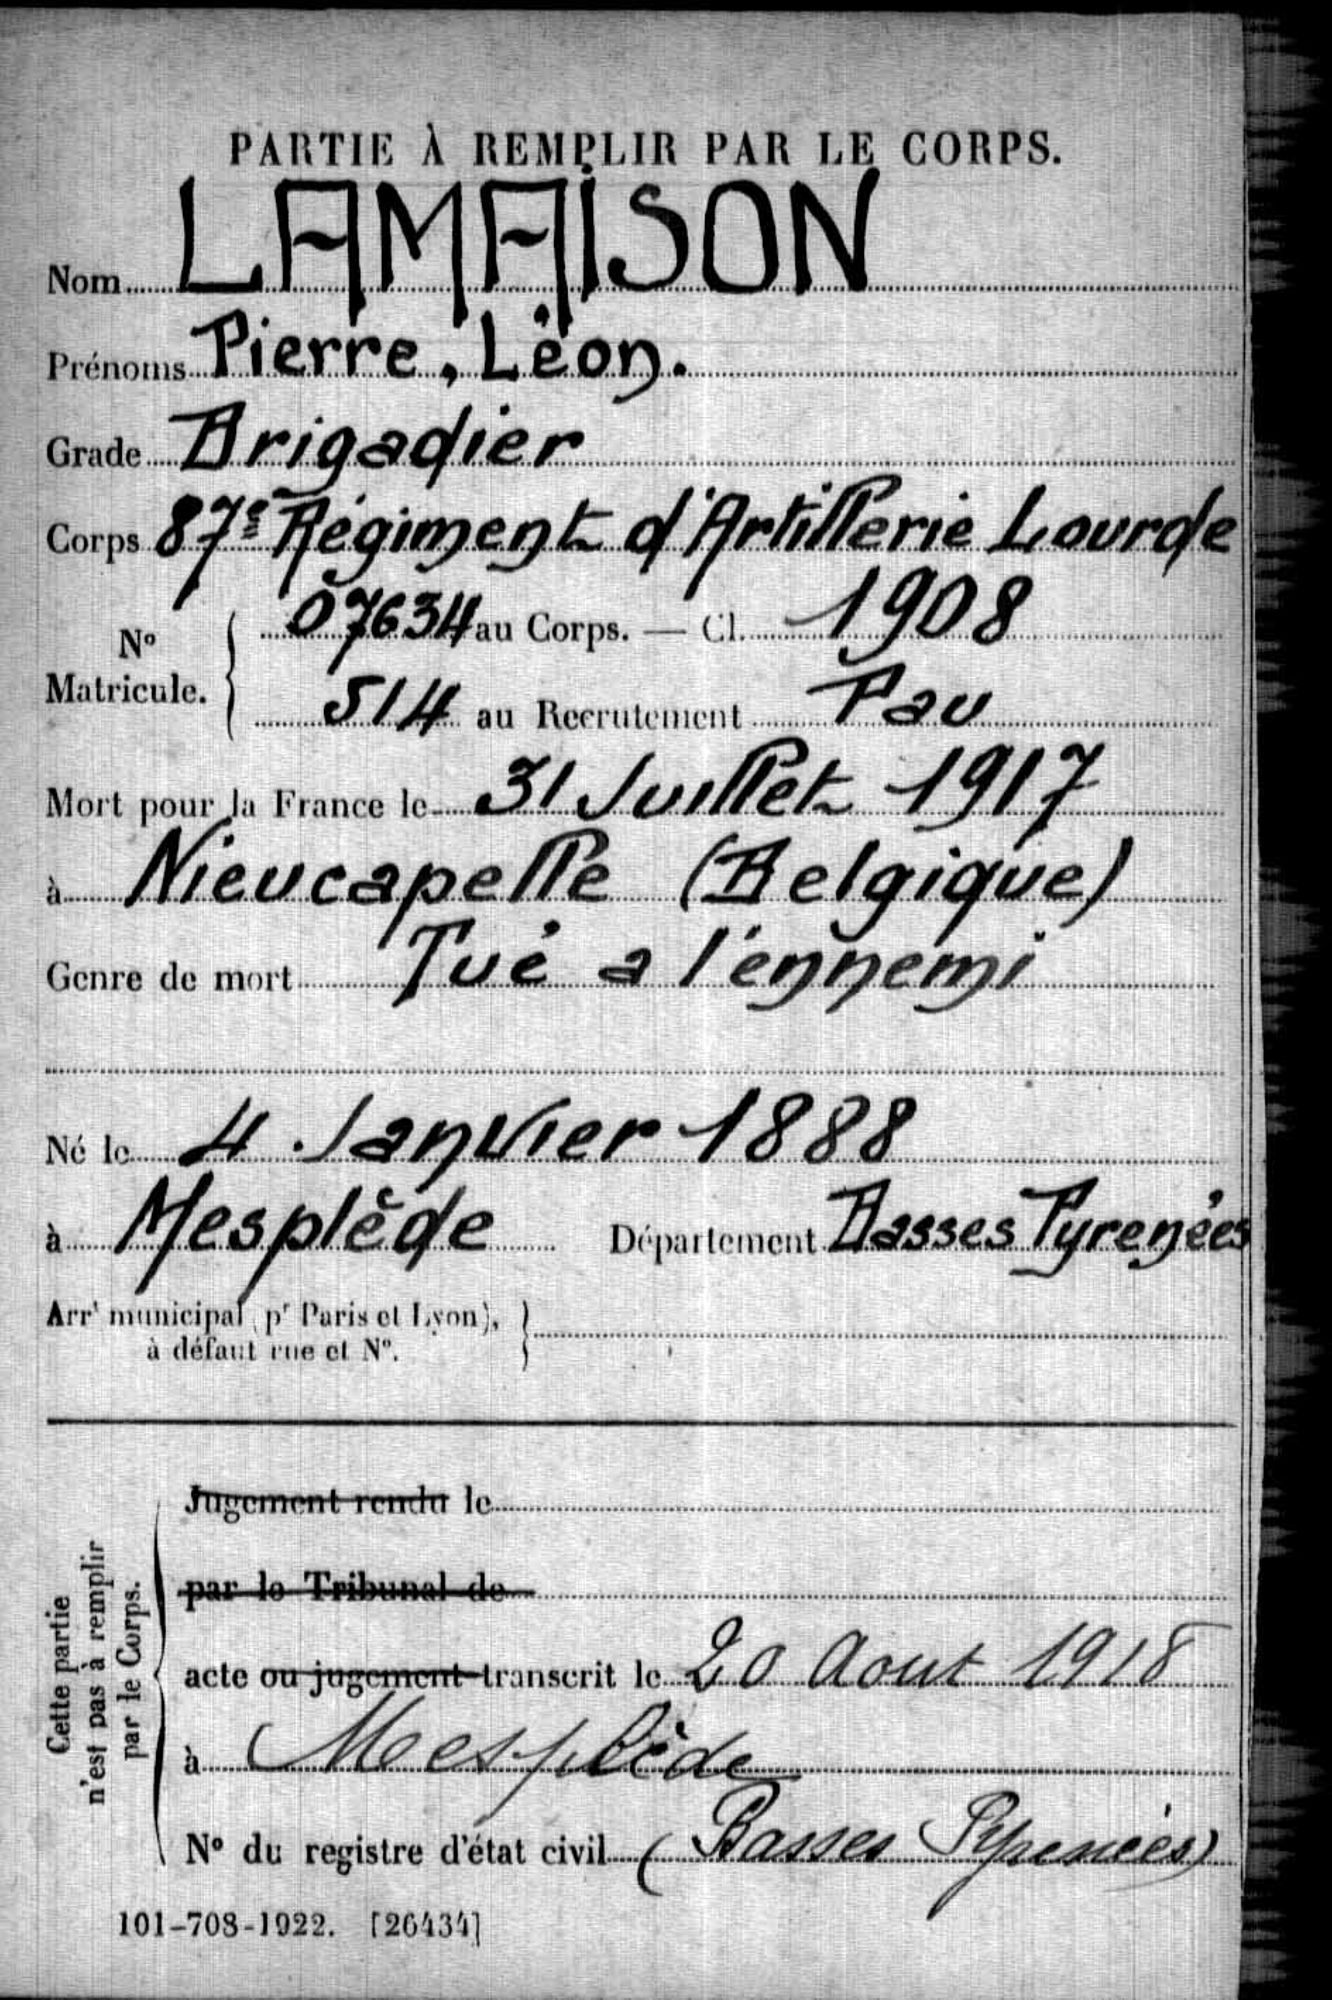 PARTIE À REMPLIR PAR LE CORPS.
Nom LAMAISON
Prénoms Pierre, Léon.
Grade Brigadier
Corps 87e Régiment d'Artillerie Lourde
Nº Matricule. 07634 au Corps. — Cl. 1908
514 au Recrutement Pau
Mort pour la France le 31 Juillet 1917
à Nieucapelle (Belgique)
Genre de mort Tué a l'ennemi
Né le 4 Janvier 1888
à Mesplède Département Basses Pyrenées
Arrt municipal (pr Paris et Lyon),
à défaut rue et Nº.
Cette partie
n'est pas à remplir
par le Corps.
Jugement rendu le
par le Tribunal de
acte ou jugement transcrit le 20 Aout 1918
à Mesplède
Nº du registre d'état civil (Basses Pyrenées)
101-708-1922. [26434]